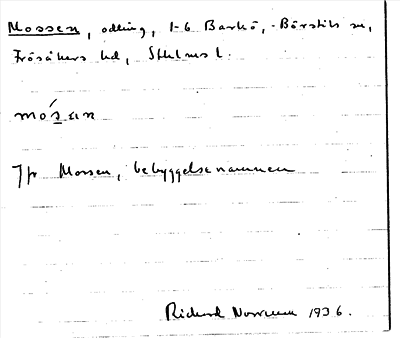 Mossen, odling, 1-6 Barkö, Börstils sn,
Frösåkers hd, Sthlms l.
mósan
Jfr Mossen, bebyggelsenamnen
Rickard 1936.